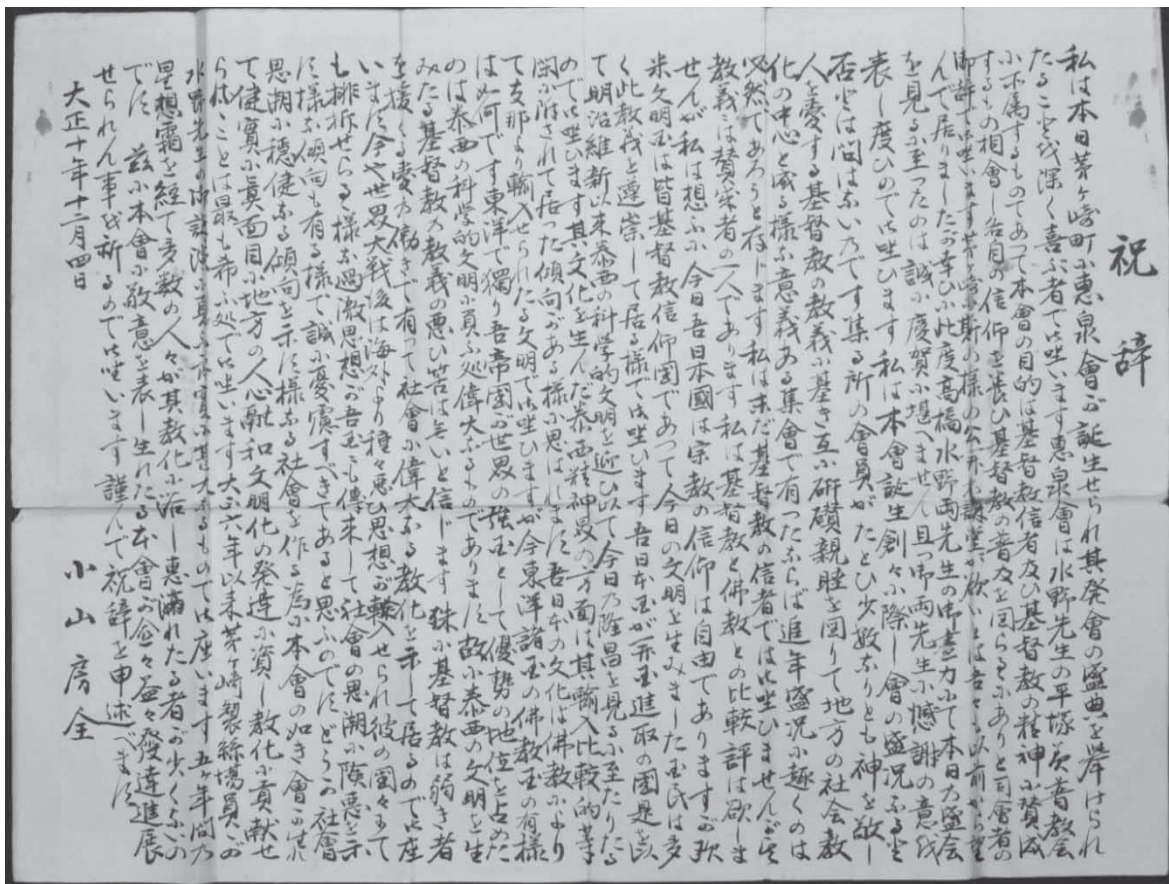 祝辞
私は本日茅ヶ崎町小惠泉會が誕生せられ其発會の盛典を挙げられ
たること我深く喜ぶ者で御坐います惠泉會は水野先生の平塚美普教会
小属するものであって本會の目的は基督教信者及び基督教の精神小賛成
するもの相會し各自の信仰を養ひ基督教の普及を図らるにありと司會者の
御辞で御坐います茅ヶ崎斯の様の公开講堂が欲いとは吾々以前から望
んで居りましたが幸ひ小此度高橋水野両先生の御盡力小て本日の盛会
を見る小至つたのは誠小慶賀小堪へません且つ御両先生小感謝の意を
表し度ひので御坐ひます私は本會誕生創々小際し會の盛況なると
否とは問はないのです集る所の會員がたとひ少数なりとも神を敬し
人を愛する基督教の教義小基き互小研鑚親睦を図りて地方の社会教
化の中心と成る様な意義ある集會で有ったならば追年盛況小趣くのは
必然であろうと存じます私は未だ基督教の信者では御坐ひませんが其
教義には賛成者の一人であります私は基督教と佛教との比較評は欲しま
せんが私は想ふ小今日吾日本國は宗教の信仰は自由でありますが欧
米文明国は皆基督教信仰國であつて今日の文明を生みました国民は多
く此教義を遵崇して居る様で御坐ひます吾日本国が開国進取の國是を以
て明治維新以来泰西の科学的文明を迎ひ以て今日の隆昌を見る小至たりたる
ので御坐ひます其文化を生んだ泰西精神界の方面は其輸入比較的等
閑小附されて居った傾向がある様小思はれます吾日本の文化は佛教小より
て支那より輸入せられたる文明で御坐ひますが今東洋諸国の佛教国の有様
は如何です東洋で獨り吾帝國が世界の強国として優勢の地位を占めた
のは泰西の科学的文明小負ふ処偉大なるものであります故小泰西の文明を生
みたる基督教の教義の悪ひ筈は無いと信じます殊小基督教は弱き者
を援くる愛の働きで有って社會小偉大なる教化を示して居るので御座
います今や世界大戦後は海外より種々悪ひ思想が輸入せられ彼の國々にて
も排拆せらるゝ様な過激思想が吾国にも傳来して社會の思潮小険悪を示
す様な傾向も有る様で誠小憂慮すべきであると思ふのですどうか社會
思潮小穏健なる傾向を示す様なる社會を作る為小本會の如き會の生れ
て健實小眞面目小地方の人心融和文明化の発達小資し教化小貢献せ
られんことは最も希ふ処で御坐います大正六年以来茅ヶ崎製絲場員が
水野先生の御説教小甚大なるもので御座います五ヶ年間の
星想霜を経て多数の人々が其教化小浴し惠満れたる者が少くないの
です茲小本會小敬意を表し生れたる本會が益々発達進展
せられん事を祈るので御坐います謹んで祝辞を申述べます
大正十年十二月四日
小山房全